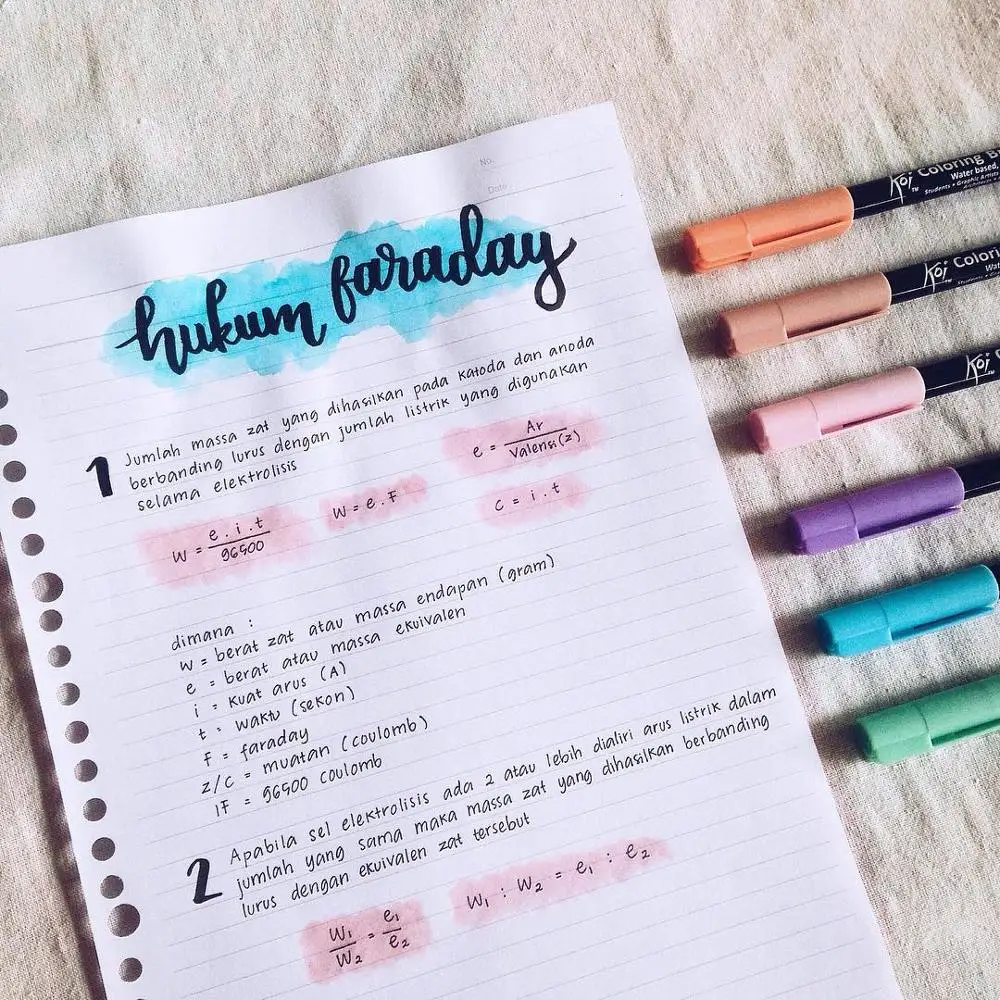 No.
Date
hukum faraday
1 Jumlah massa zat yang dihasilkan pada katoda dan anoda
berbanding lurus dengan jumlah listrik yang digunakan
selama elektrolisis
e = Ar / Valensi (z)
W = e . i . t / 96500
W = e . F
C = i . t
dimana :
W = berat zat atau massa endapan (gram)
e = berat atau massa ekuivalen
i = kuat arus (A)
t = waktu (sekon)
F = faraday
z/C = muatan (coulomb)
1F = 96500 coulomb
2 Apabila sel elektrolisis ada 2 atau lebih dialiri arus listrik dalam
jumlah yang sama maka massa zat yang dihasilkan berbanding
lurus dengan ekuivalen zat tersebut
W₁ / W₂ = e₁ / e₂
W₁ : W₂ = e₁ : e₂
Koi TM Coloring B
Water based,
Students • Graphic Artists
Koi TM Colori
Wat
Koi TM